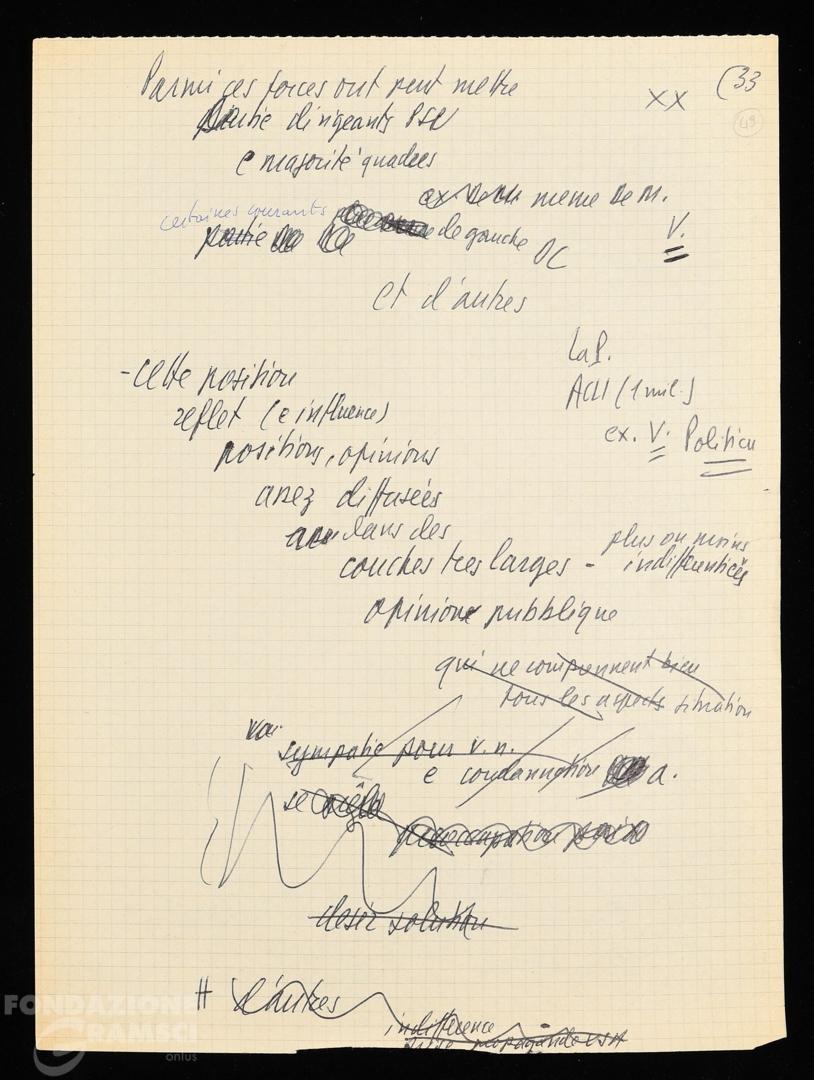 (33
49
Parmi ces forces ont peut mettre
XX
partie dirigeants PSU
e majorité quadres
ex. meme de M.
certaines courants
de gauche DC
V.
partie
et d'autres
La P.
- Cette position
ACLI (1 mil.)
reflet (e influence)
ex. V. Politica
positions, opinions
assez diffusées
dans des
couches tres larges - plus ou moins
indifferentiées
opinion pubblique
qui ne comprennent bien
tous les aspects situation
sympatie pour V.N.
e condannation a.
se
preoccupation paix
desir solution
H d'autres
indifference
propagande USA
FONDAZIONE
GRAMSCI
onlus